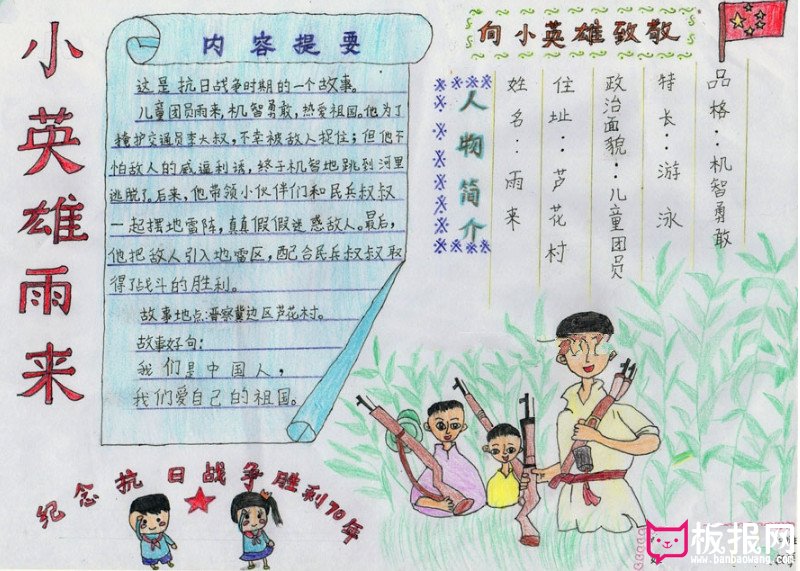 小英雄雨来
内容提要
这是抗日战争时期的一个故事。
儿童团员雨来,机智勇敢,热爱祖国。他为了
掩护交通员李大叔,不幸被敌人捉住;但他不
怕敌人的威逼利诱,终于机智地跳到河里
逃脱了。后来,他带领小伙伴们和民兵叔叔
一起摆地雷阵,真真假假迷惑敌人。最后,
他把敌人引入地雷区,配合民兵叔叔取
得了战斗的胜利。
故事地点:晋察冀边区芦花村。
故事好句:
我们是中国人,
我们爱自己的祖国。
向小英雄致敬
人物简介
姓名:雨来
住址:芦花村
政治面貌:儿童团员
特长:游泳
品格:机智勇敢
纪念抗日战争胜利70年
板报网
www.banbaowang.com